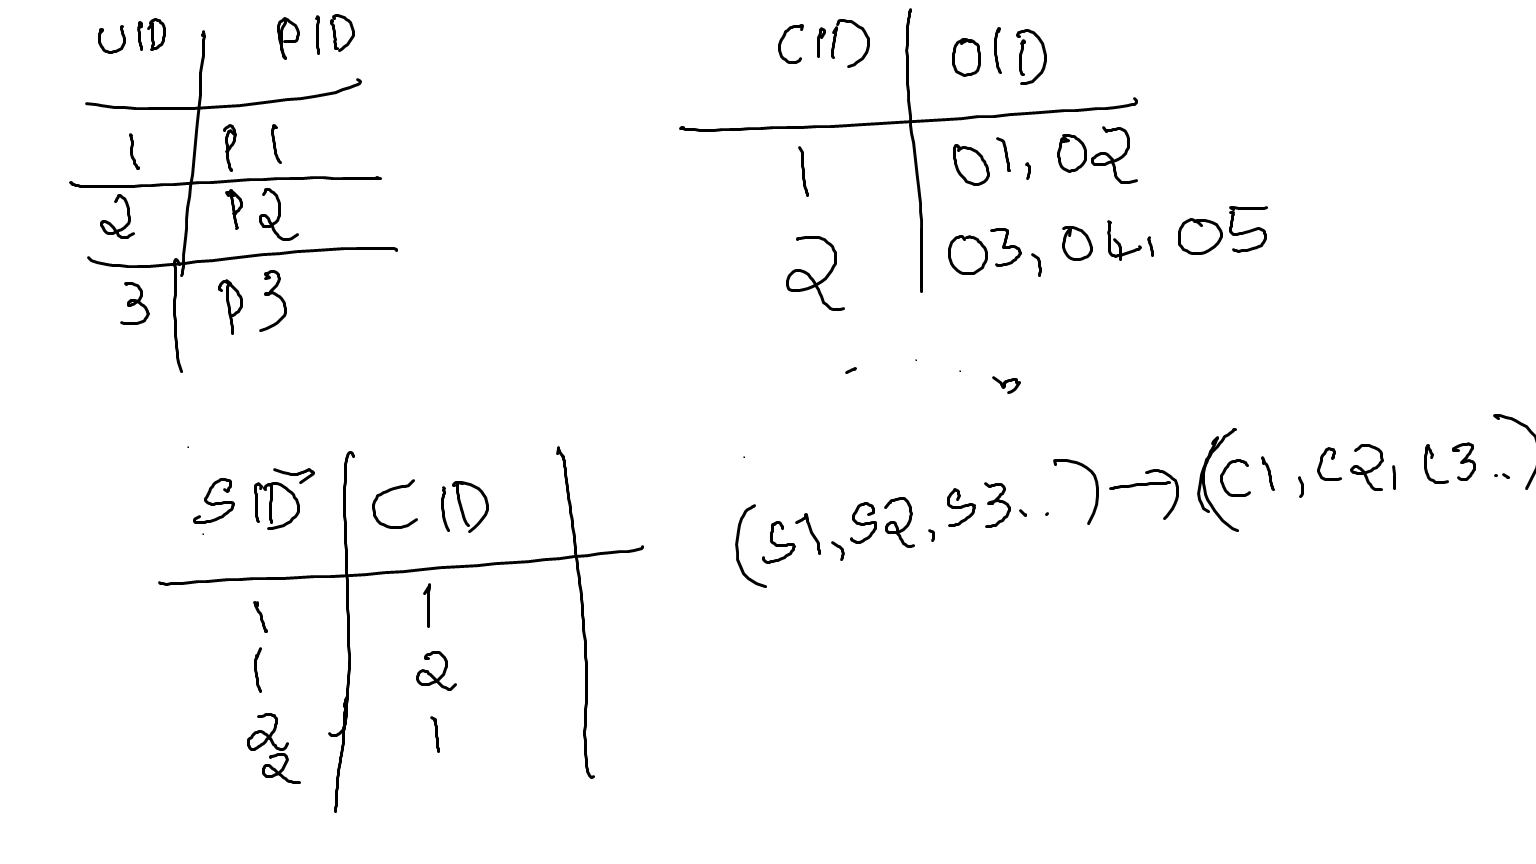 UID PID
1 P1
2 P2
3 P3
CID OID
1 O1, O2
2 O3, O4, O5
SID CID
1 1
1 2
2 1
2
(S1, S2, S3..) → (C1, C2, C3..)